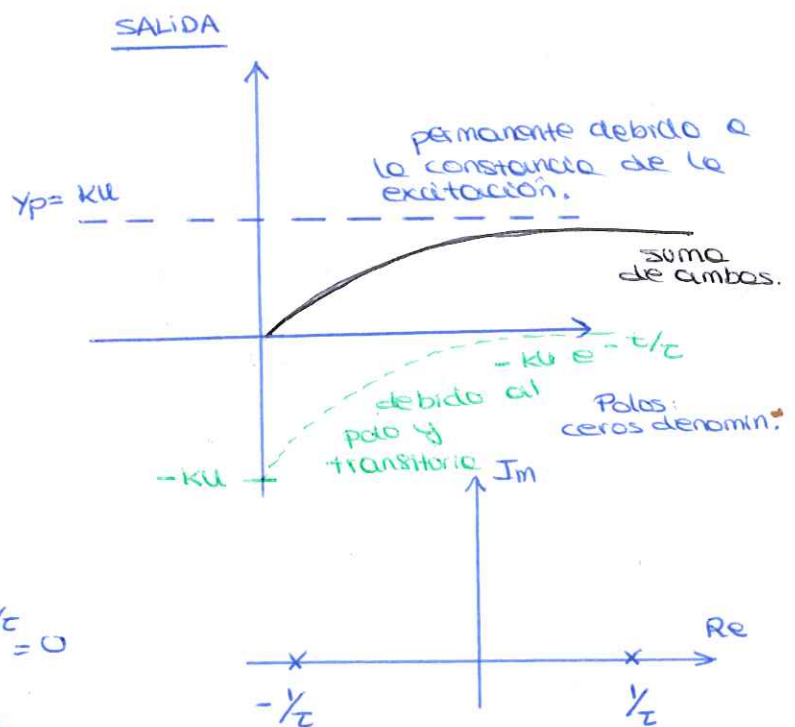 SALIDA
permanente debido a
la constancia de la
excitación.
yp = ku
suma
de ambos.
- ku e - t/τ
debido al
polo y
transitorio
Polos:
ceros denomin.
- ku
Im
/τ
= 0
Re
- 1/τ
1/τ